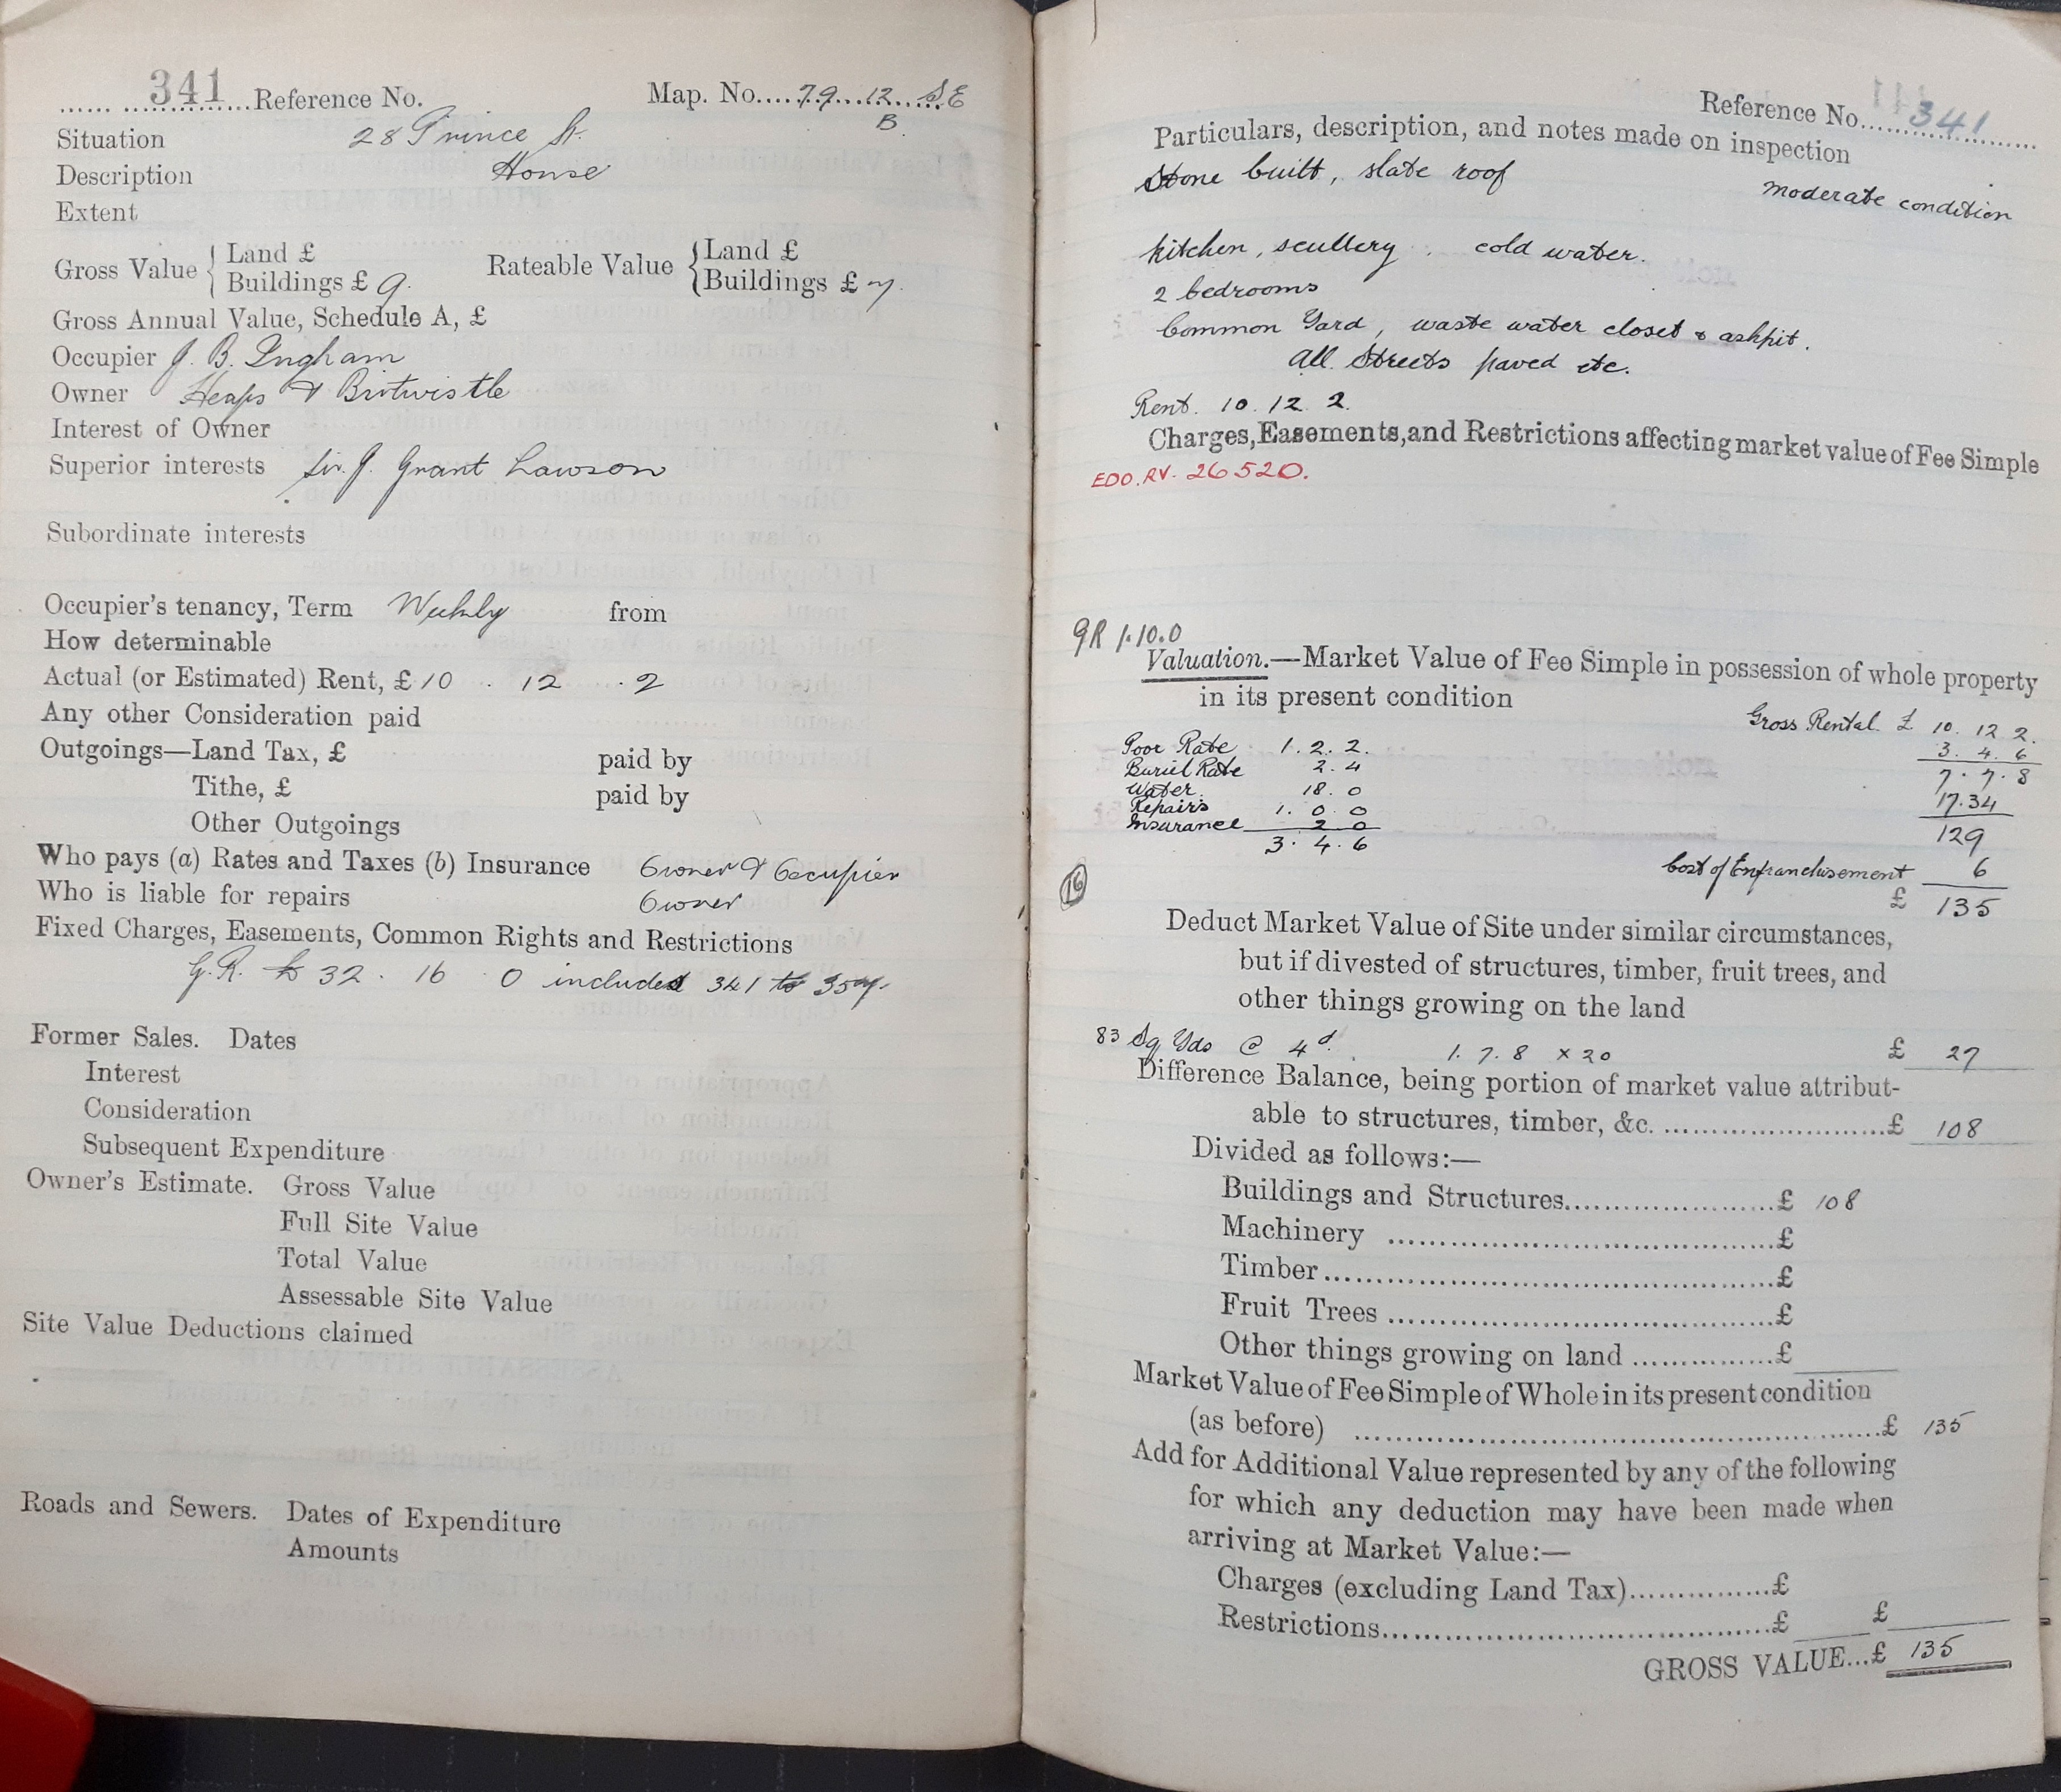 341 Reference No. Map. No. 79 12 SE
B.
Situation 28 Prince St.
Description House
Extent
Gross Value { Land £ Rateable Value { Land £
Buildings £ 9. Buildings £ 7.
Gross Annual Value, Schedule A, £
Occupier J. B. Ingham
Owner Heaps & Birtwistle
Interest of Owner
Superior interests Sir J. Grant Lawson
Subordinate interests
Occupier's tenancy, Term Weekly from
How determinable
Actual (or Estimated) Rent, £ 10 . 12 . 2
Any other Consideration paid
Outgoings—Land Tax, £ paid by
Tithe, £ paid by
Other Outgoings
Who pays (a) Rates and Taxes (b) Insurance Owner & Occupier
Who is liable for repairs Owner
Fixed Charges, Easements, Common Rights and Restrictions
G.R. 32 . 16 . 0 included 341 to 357.
Former Sales. Dates
Interest
Consideration
Subsequent Expenditure
Owner's Estimate. Gross Value
Full Site Value
Total Value
Assessable Site Value
Site Value Deductions claimed
Roads and Sewers. Dates of Expenditure
Amounts
Reference No. 341
Particulars, description, and notes made on inspection
Stone built, slate roof
Moderate condition
Kitchen, scullery . cold water.
2 bedrooms
Common Yard, waste water closet & ashpit.
All Streets paved etc.
Rent. 10. 12. 2.
Charges, Easements, and Restrictions affecting market value of Fee Simple
EDO. RV. 26520.
GR 1.10.0
Valuation.—Market Value of Fee Simple in possession of whole property
in its present condition
Gross Rental £ 10. 12. 2.
Poor Rate 1. 2. 2. 3. 4. 6
Buriel Rate 2. 4 7. 7. 8
Water. 18. 0 17.34
Repairs 1. 0. 0
Insurance 2. 0 129
3. 4. 6
Cost of Enfranchisement 6
16 £ 135
Deduct Market Value of Site under similar circumstances,
but if divested of structures, timber, fruit trees, and
other things growing on the land
83 Sq Yds @ 4d. 1. 7. 8 x 20 £ 27
Difference Balance, being portion of market value attribut-
able to structures, timber, &c. £ 108
Divided as follows:—
Buildings and Structures £ 108
Machinery £
Timber £
Fruit Trees £
Other things growing on land £
Market Value of Fee Simple of Whole in its present condition
(as before) £ 135
Add for Additional Value represented by any of the following
for which any deduction may have been made when
arriving at Market Value:—
Charges (excluding Land Tax) £
Restrictions £ £
GROSS VALUE...£ 135